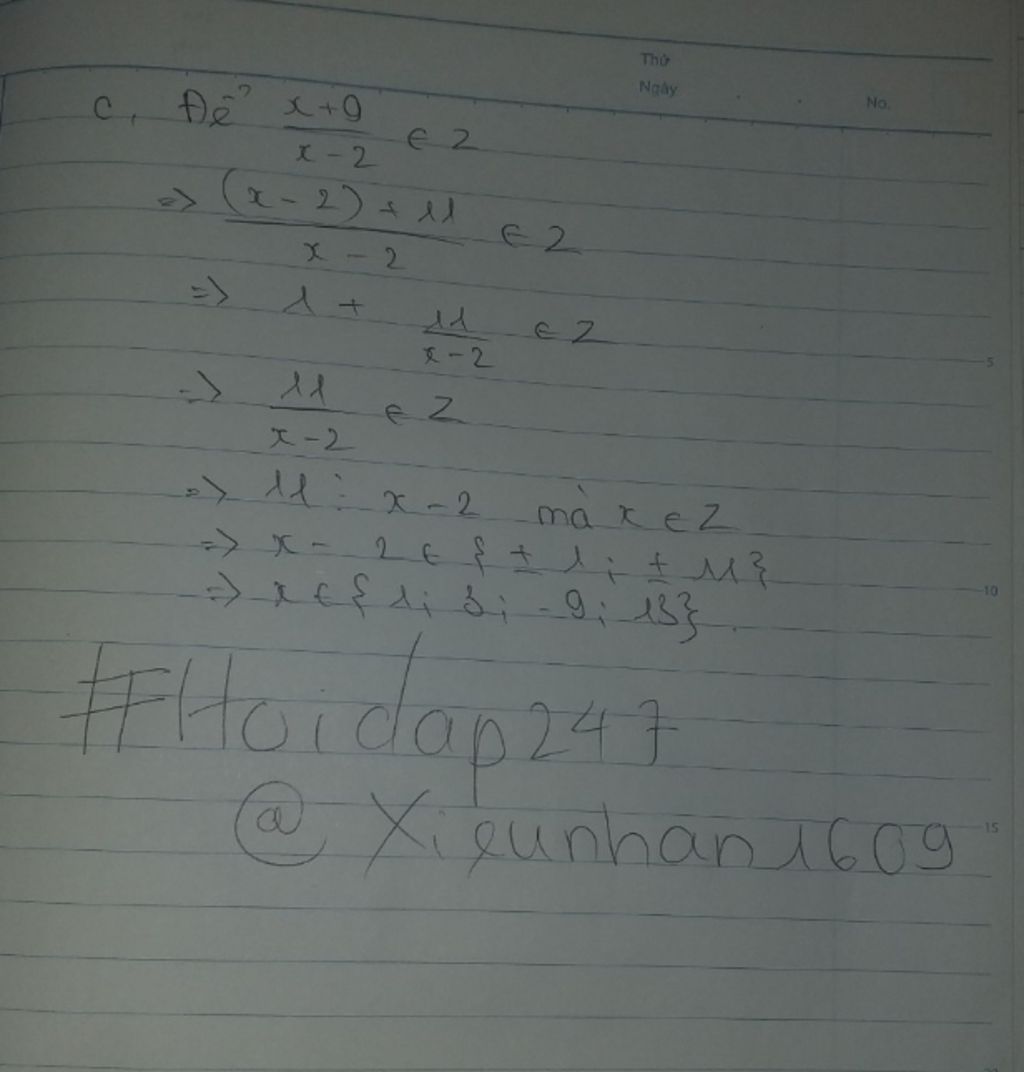 Thứ
Ngày
No.
c, Để x+9/x-2 ∈ Z
=> (x-2)+11/x-2 ∈ Z
=> 1 + 11/x-2 ∈ Z
=> 11/x-2 ∈ Z
=> 11 ⋮ x-2 mà x ∈ Z
=> x - 2 ∈ {± 1; ± 11}
=> x ∈ {1; 3; -9; 13}.
#Hoidap247
@Xieunhan1609
5
10
15